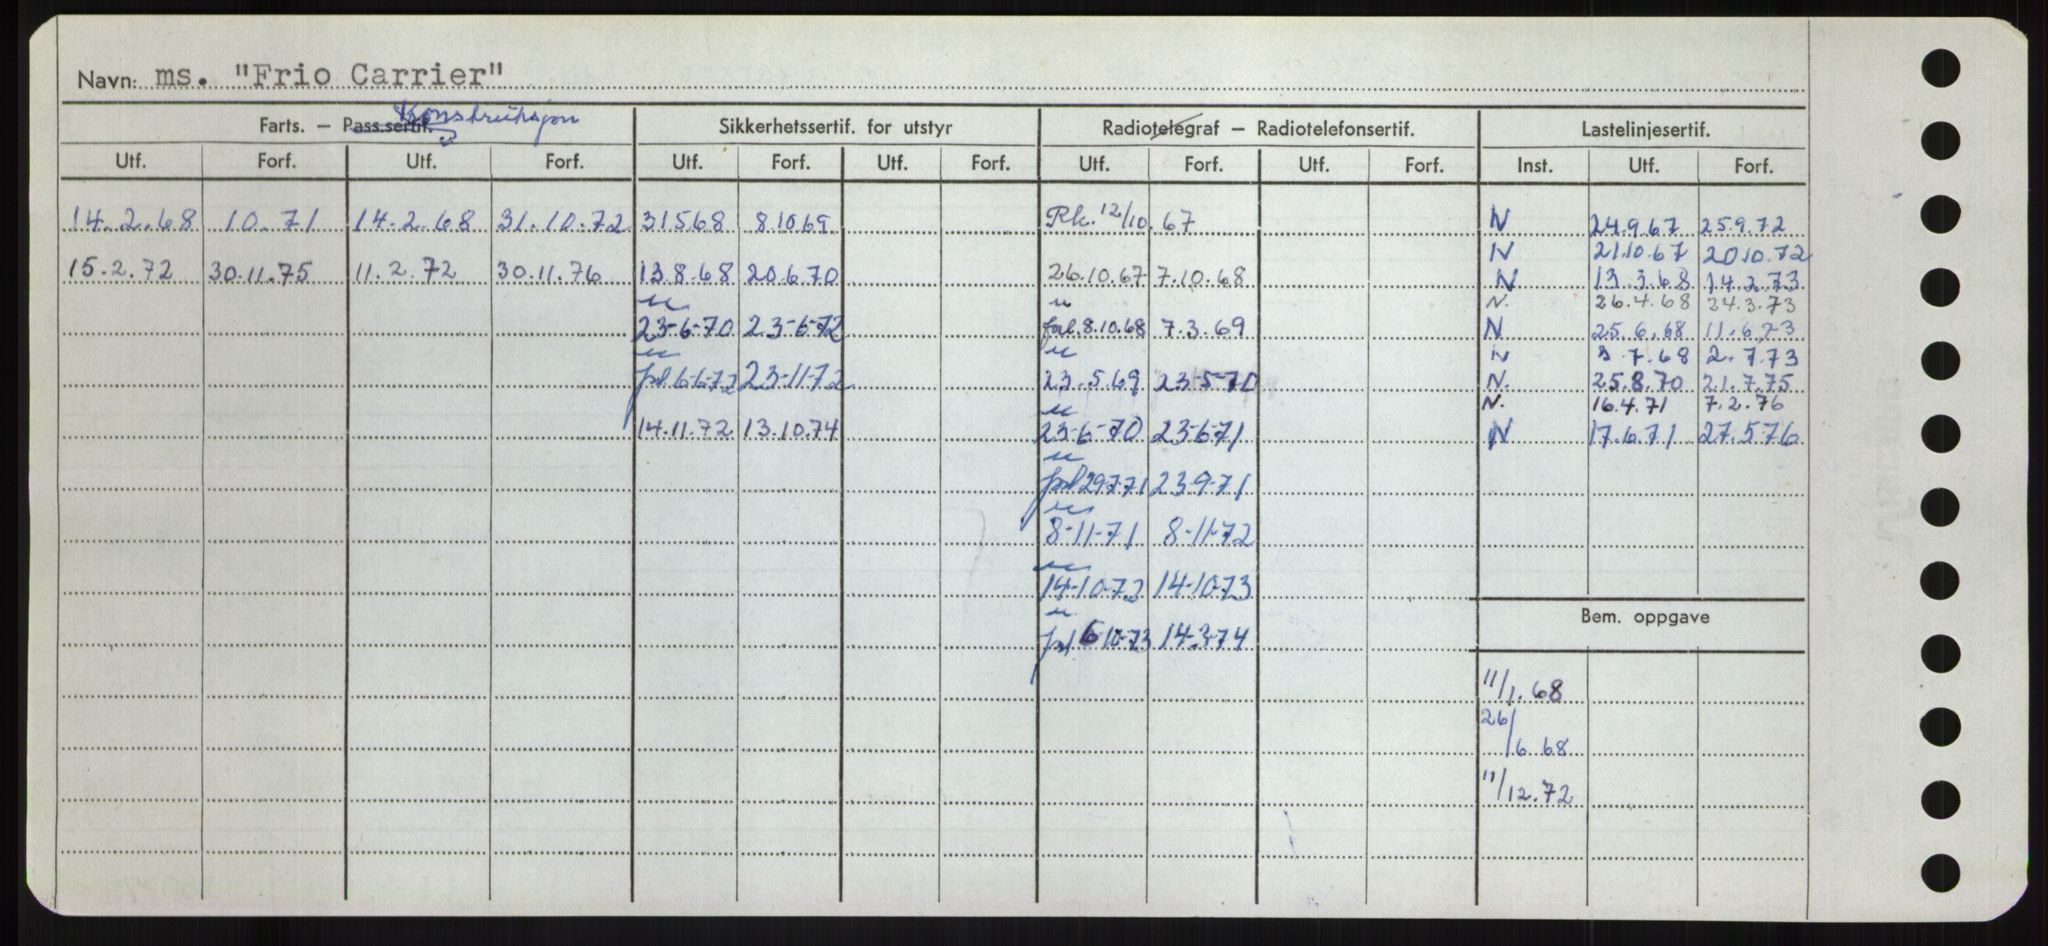 Navn: ms. "Frio Carrier"
Konstruksjon
Farts. – Pass.sertif. Sikkerhetssertif. for utstyr Radiotelegraf – Radiotelefonsertif. Lastelinjesertif.
Utf. Forf. Utf. Forf. Utf. Forf. Utf. Forf. Utf. Forf. Utf. Forf. Inst. Utf. Forf.
14.2.68 10.71 14.2.68 31.10.72 31568 8.10 69 Rk. 12/10.67 N 24.9.67 25.9.72
N 21.10.67 20.10.72
15.2.72 30.11.75 11.2.72 30.11.76 13.8.68 20.6.70 26.10.67 7.10.68 N 13.3.68 14.2.73
N. 26.4.68 24.3.73
23-6-70 23-6-72 8.10.68 7.3.69 N 25.6.68 11.6.73
N 3.7.68 2.7.73
6-6-72 23-11-72 23.5.69 23-5-70 N. 25.8.70 21.7.75
N. 16.4.71 7.2.76
14.11.72 13.10.74 23-6-70 23-6-71 N 17.6.71 27.5.76
29-7-71 23-9-71
8-11-71 8-11-72
14-10-72 14-10-73
Bem. oppgave
6-10-73 14-3-74
11/1.68
26/6 68
11/12.72